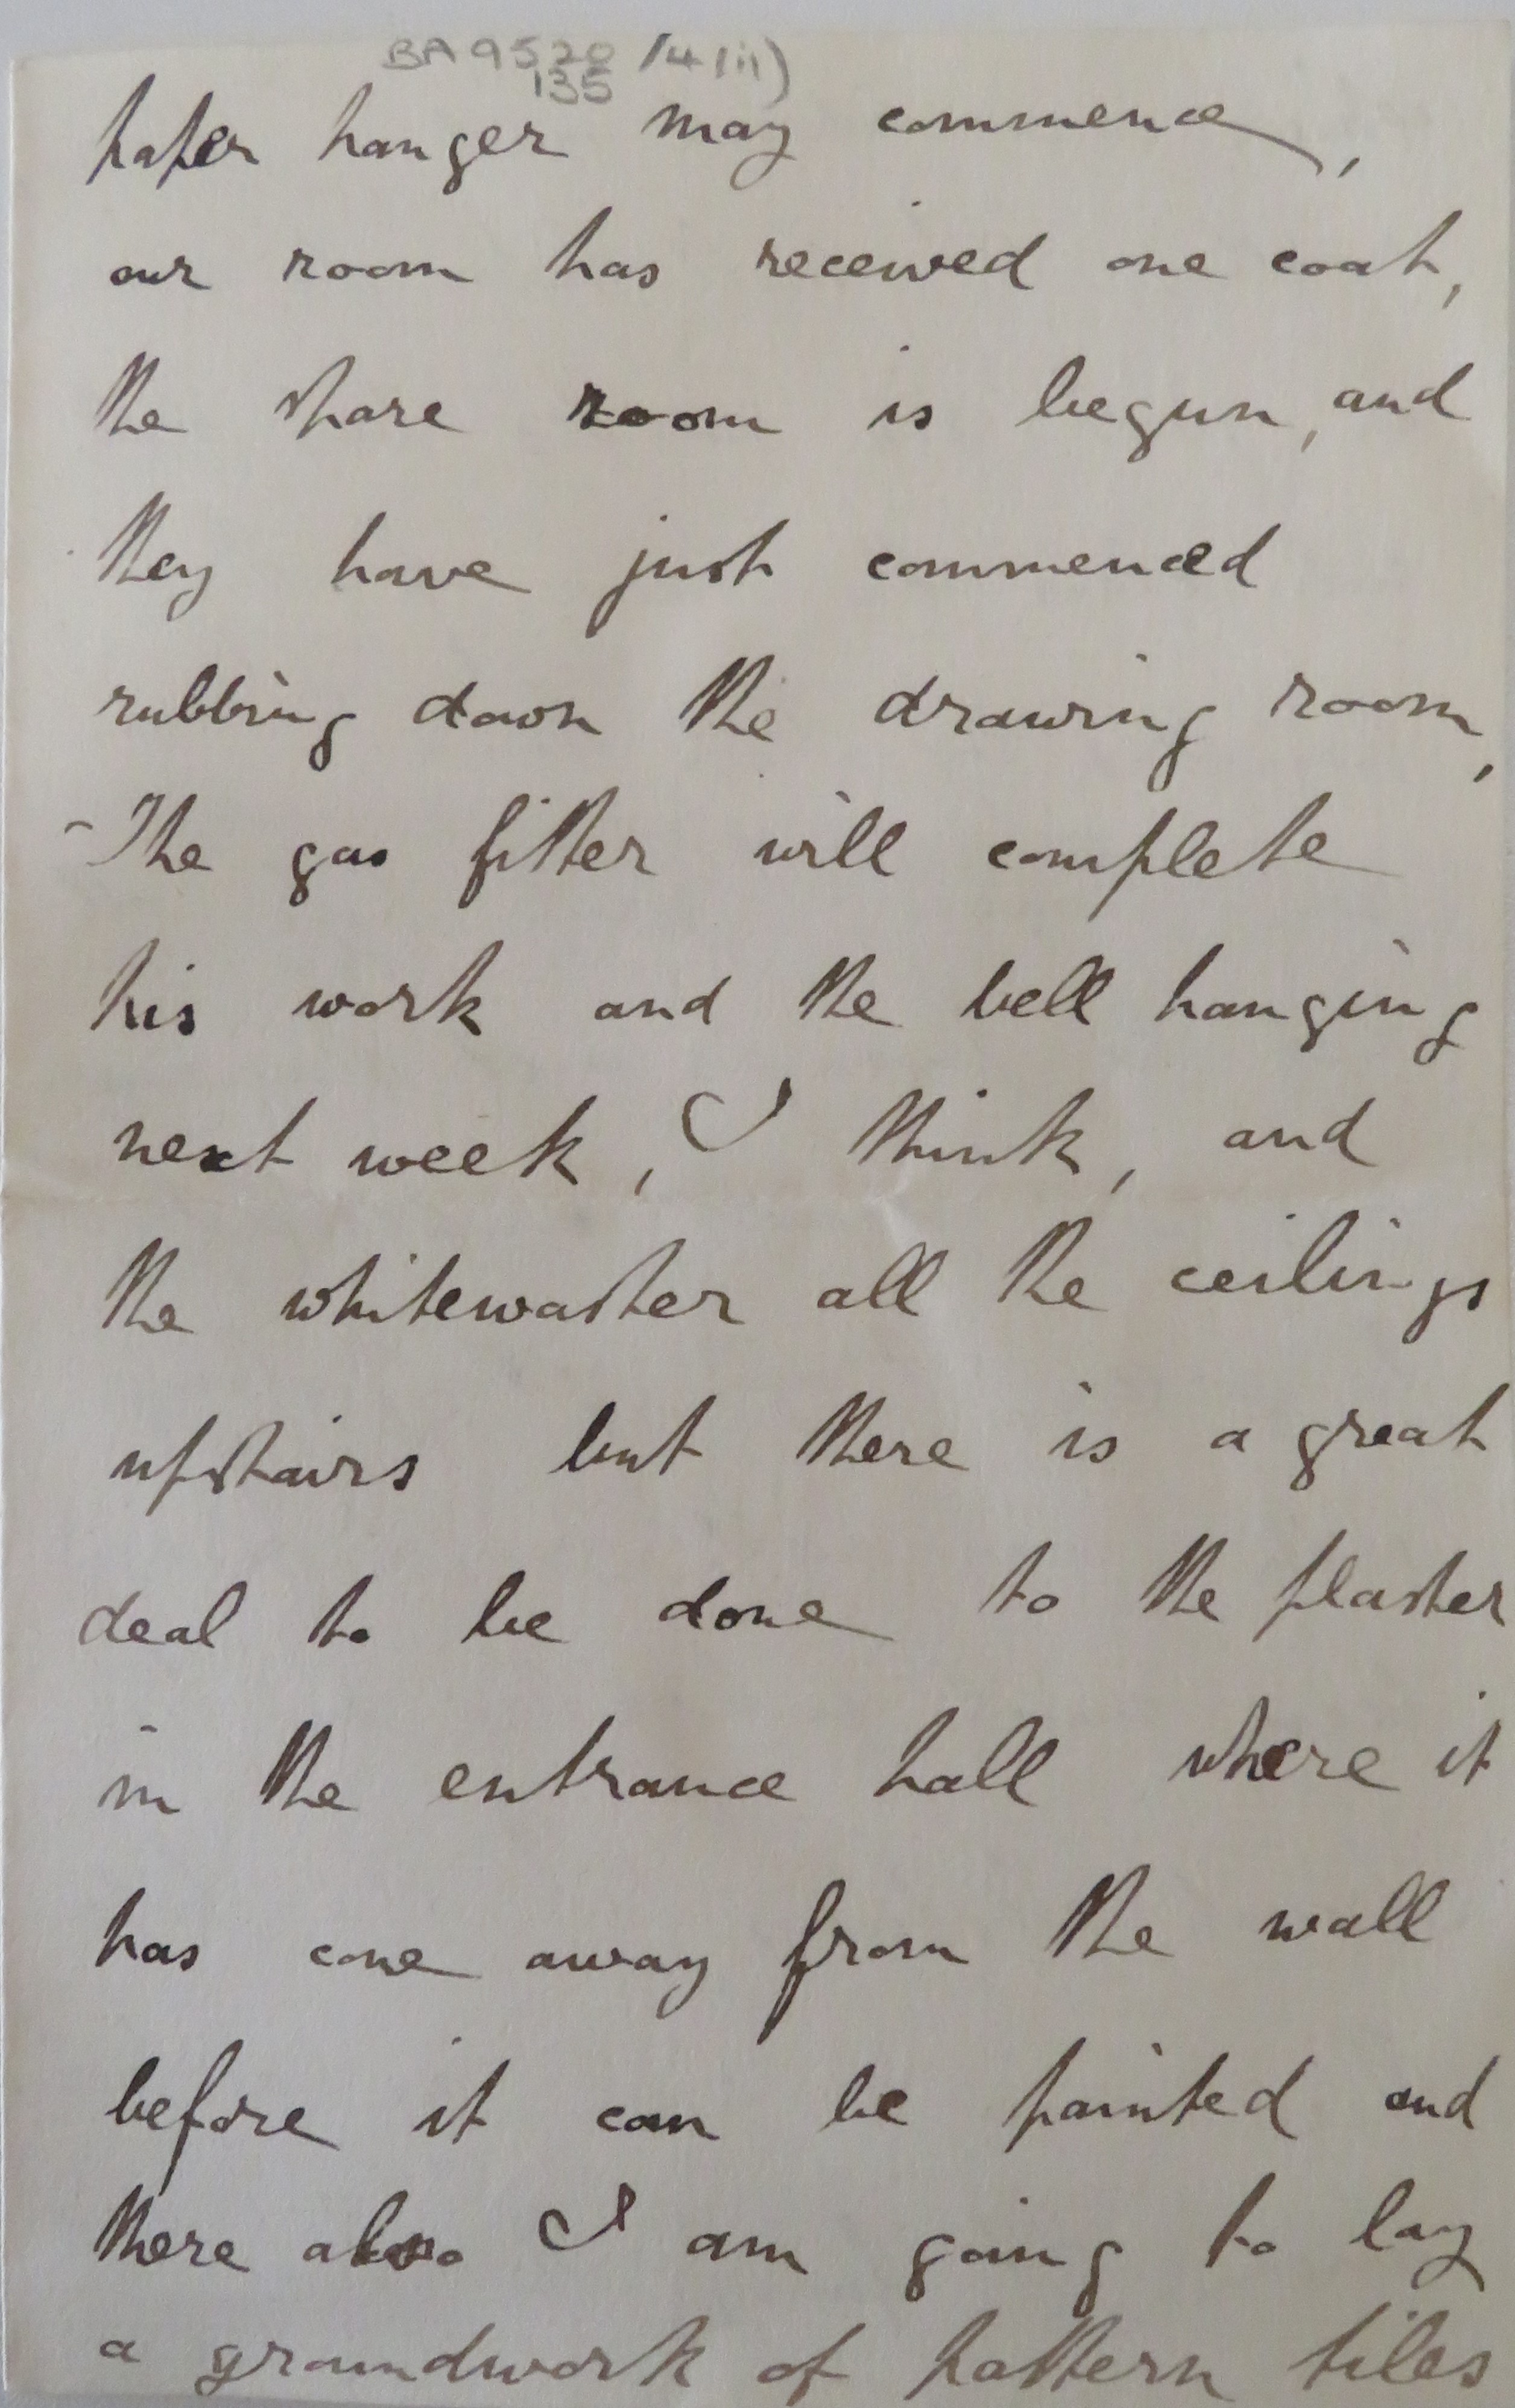 BA 9520 /4 (ii)
135
paper hanger may commence,
our room has received one coat,
the spare room is begun, and
they have just commenced
rubbing down the drawing room,
The gas fitter will complete
his work and the bell hanging
next week, I think, and
the whitewasher all the ceilings
upstairs but there is a great
deal to be done to the plaster
in the entrance hall where it
has come away from the wall
before it can be painted and
there also I am going to lay
a groundwork of pattern tiles